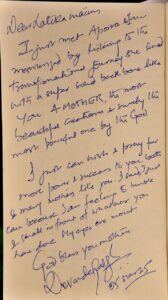 Dear Latika ma'am
I just met Apoorva I am
mesmerized by listening to the
transformational journey she had
with a super solid back bone like
You A-MOTHER, the most
beautiful creations & surely the
most powerful one by the God
I just can wish & pray for
more power & success to you both
& many mothers like you I said just
can because I am feeling so humble
& small in front of whatever you
have done My eyes are moist
God bless you mothers